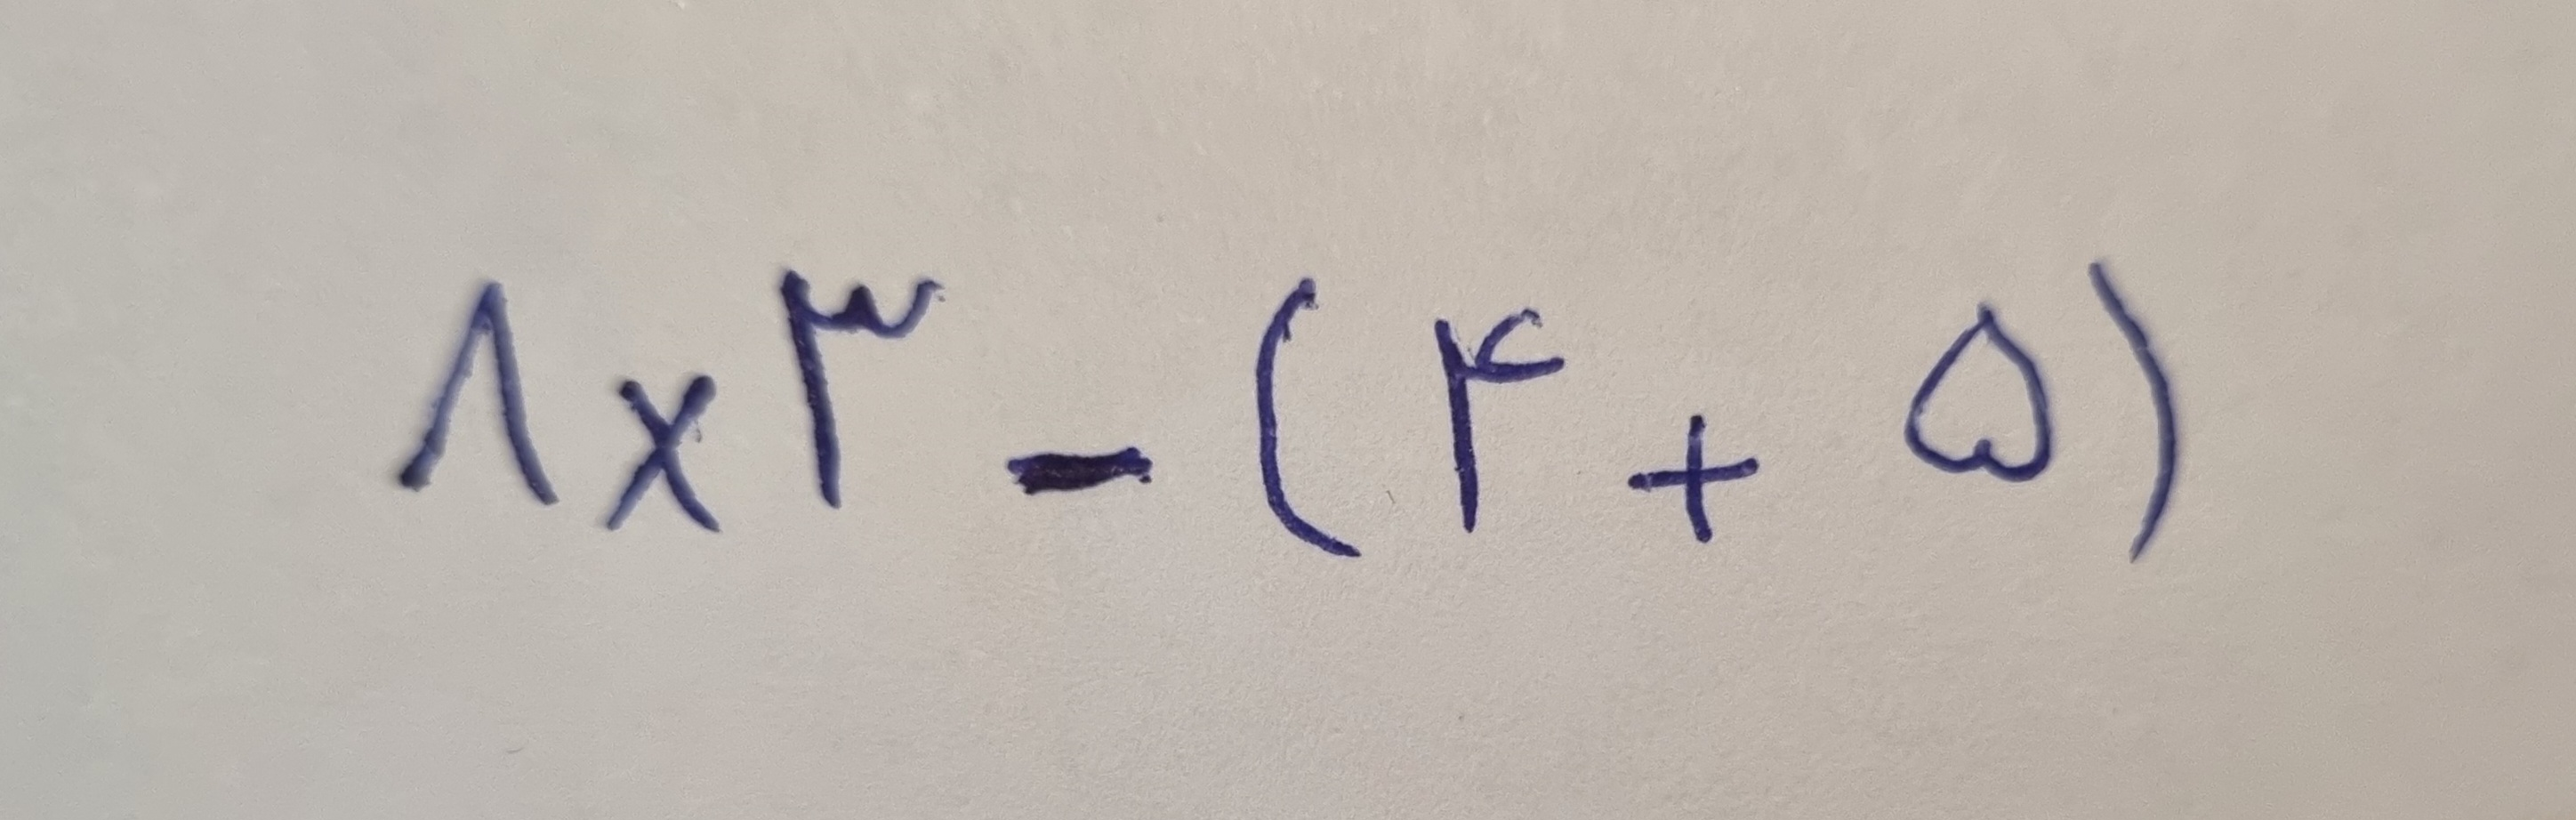 ۸×۳ - (۴ + ۵)